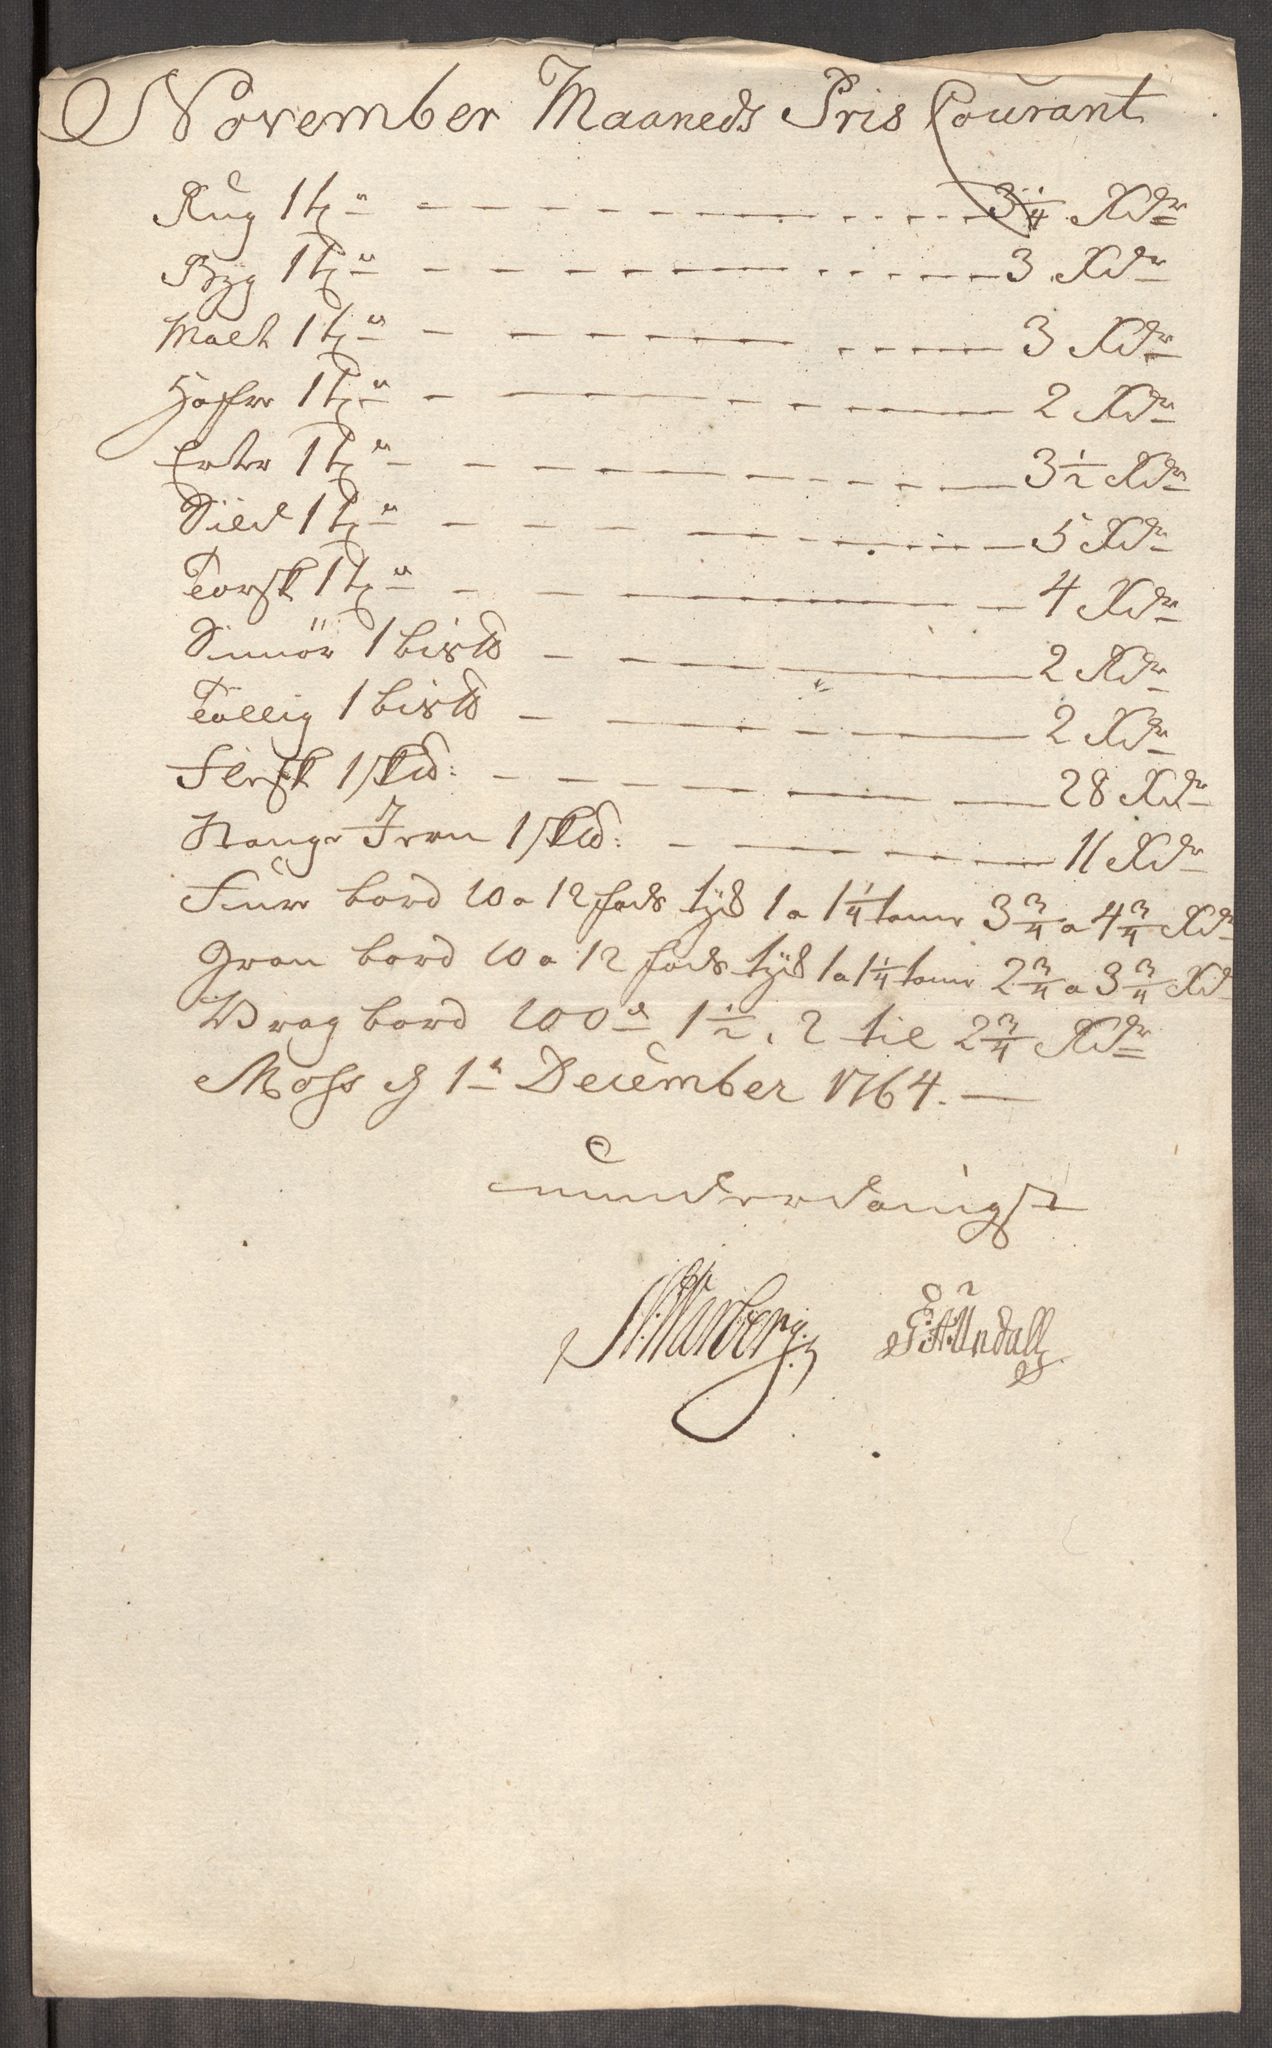 November Maaneds Pris Courant
Rug 1 tde 3 1/4 Rdr
Byg 1 tde 3 Rdr
Malt 1 tde 3 Rdr
Hafre 1 tde 2 Rdr
Erter 1 tde 3 1/2 Rdr
Sild 1 tde 5 Rdr
Torsk 1 tde 4 Rdr
Smiör 1 bis℔ 2 Rdr
Tallig 1 bis℔ 2 Rdr
Flersk 1 skld: 28 Rdr
Stange Jern 1 skld: 11 Rdr
Furre bord 10 a 12 fods tyk 1 a 1 1/4 tome 3 3/4 a 4 3/4 Rdr
Gran bord 10 a 12 fods tyk 1 a 1 1/4 tome 2 3/4 a 3 3/4 Rdr
Vrag bord 100de 1 1/2, 2 til 2 3/4 Rdr
Moss d 1te December 1764.
underdanigst
Warberg E A Undall